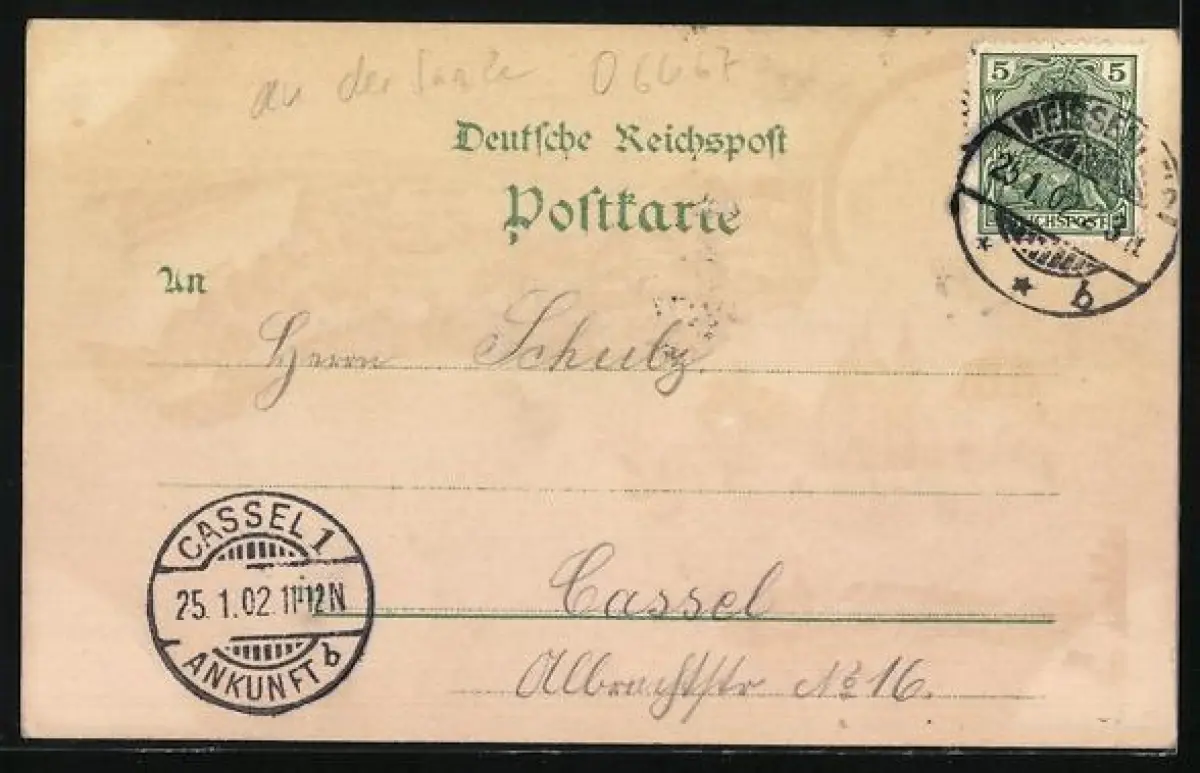 an der Saale 06667
Deutsche Reichspost
Postkarte
5 5
REICHSPOST
25.1.02
b
An
Herrn Schuby.
CASSEL 1
25.1.02 11-12N
ANKUNFT b
Cassel
Albrechtstr No 16.